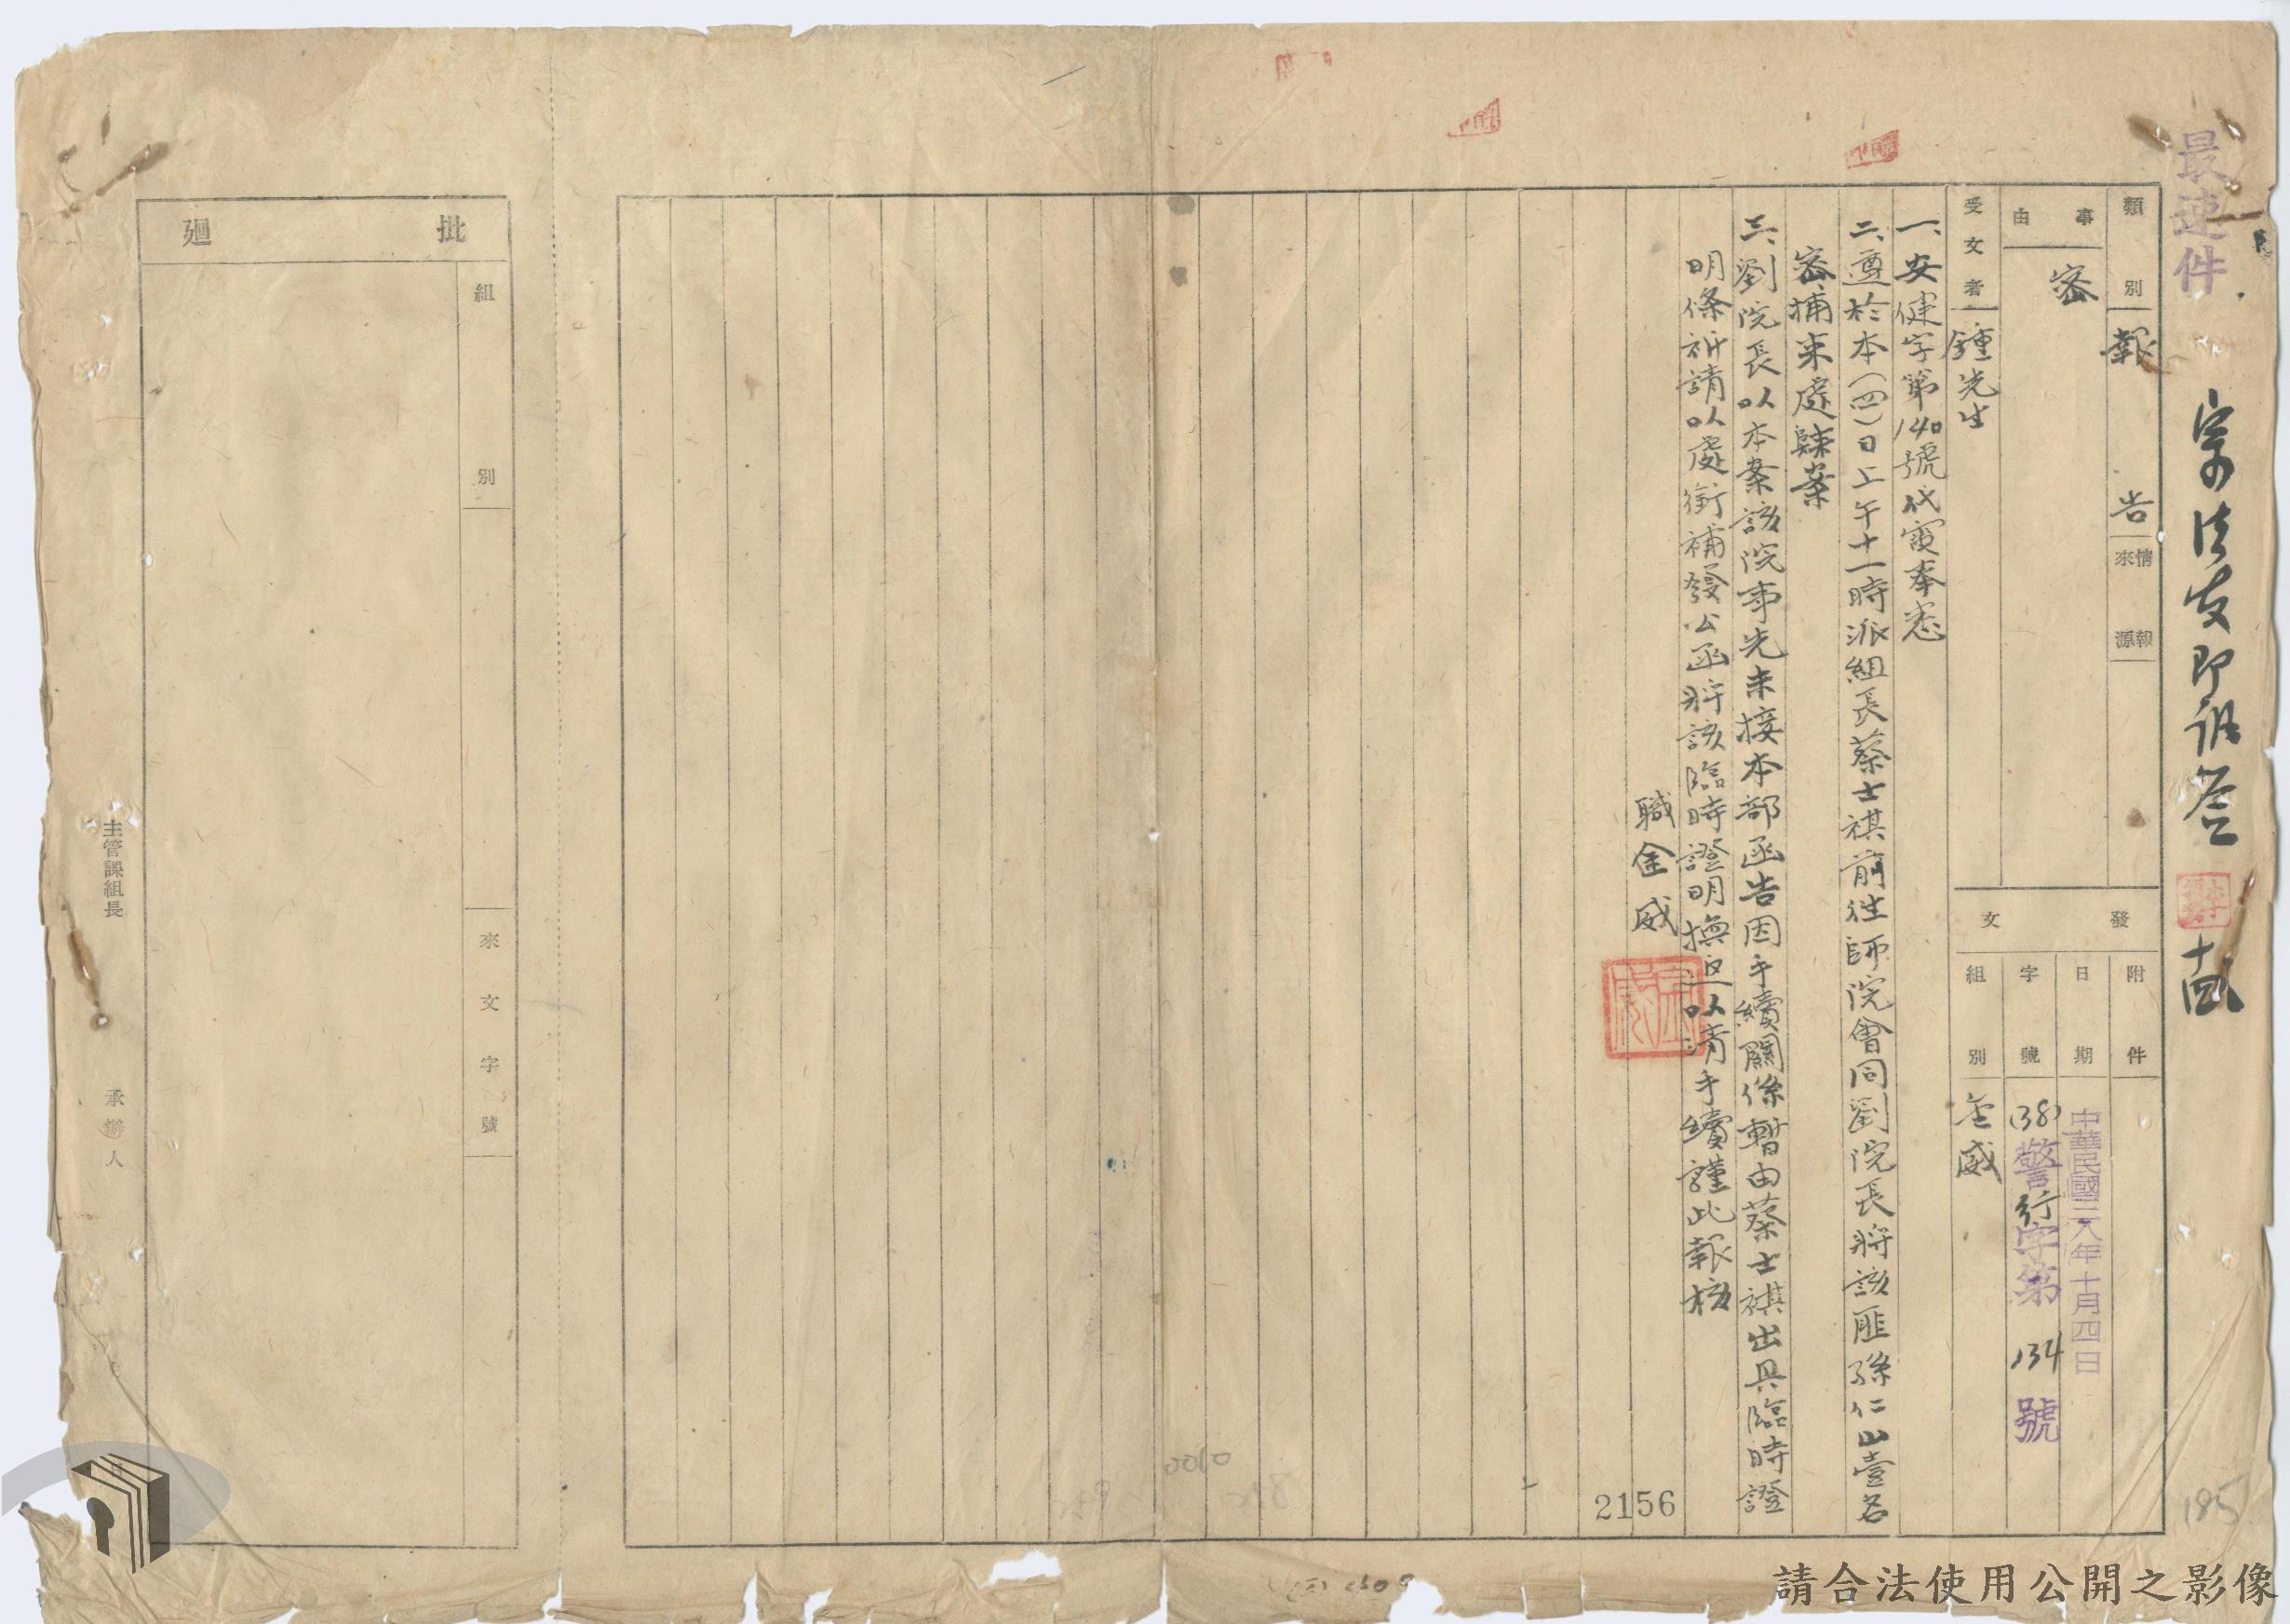 最速件
類別
報告
情報來源
事由
密
受文者
鍾先生
發文
附件
日期
中華民國三八年十月四日
字號
(38)警行字第134號
組別
金威
一、安健字第140號代電奉悉
二、遵於本(四)日上午十一時派組長蔡士祺前往師院會同劉院長將該匪孫仁山壹名
密捕來處歸案
三、劉院長以本案該院事先未接本部函告因手續關係暫由蔡士祺出具臨時證
明條祈請以處銜補發公函將該臨時證明換返以清手續謹此報核
職金威
2156
185
批廻
組別
來文字號
主管課組長
承辦人
請合法使用公開之影像